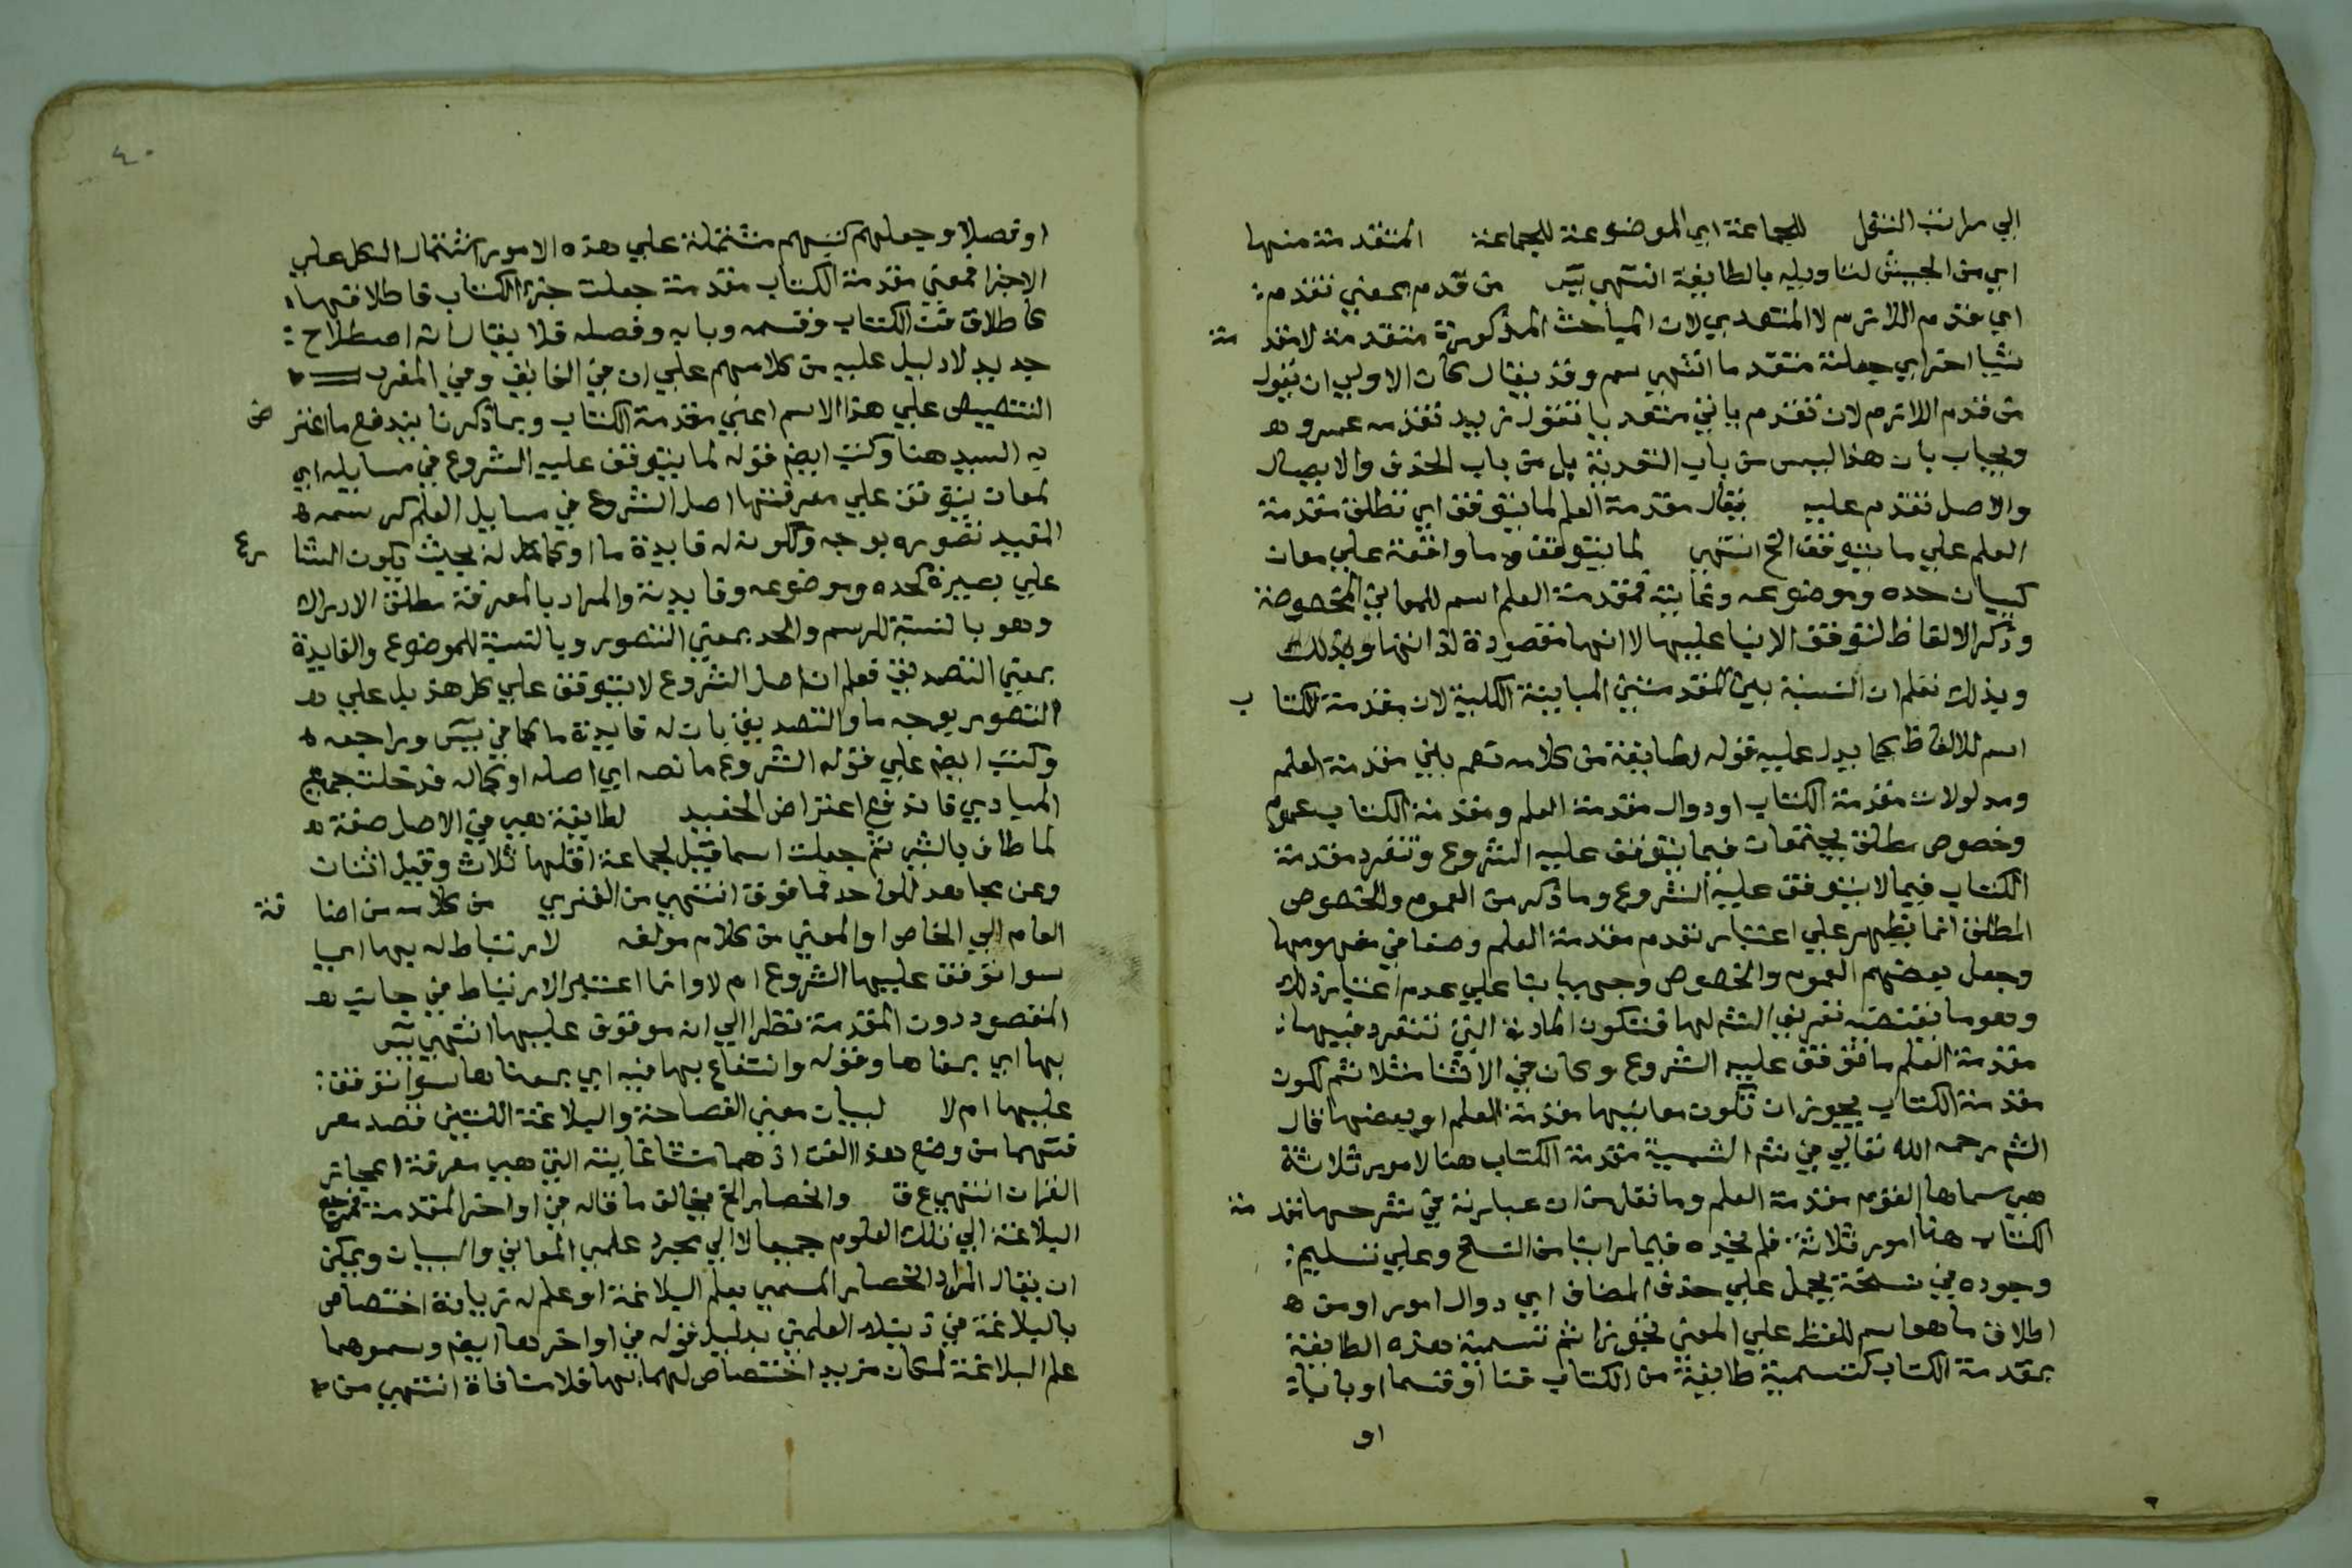 الي مراتب النقل للجماعة اي الموضوعة للجماعة المتقدمة منها
اي من الجيش لتاويله بالطايفة انتهي يس من قدم بمعني تقدم
اي من قدم اللازم لا المتعدي لان المباحث المذكورة متقدمة لا مقدمة
شيا اخر اي جعلته متقدما انتهي سم وقد يقال كان الاولي ان يقول
من قدم اللازم لان تقدم ياتي متعديا تقول زيد تقدمه عمرو
ويجاب بان هذا ليس من باب التعدية بل من باب الحذف والايصال
والاصل تقدم عليه يقال مقدمة العلم لما يتوقف اي تطلق مقدمة
العلم علي ما يتوقف الخ انتهي لما يتوقف ما واقعة علي معان
كبيان حده وموضوعه وغايته فمقدمة العلم اسم للمعاني المخصوصة
وذكر الالفاظ لتوقف الانبا عليها لا انها مقصودة لذاتها وبذلك
وبذلك تعلم ان النسبة بين المقدمتين المباينة الكلية لان مقدمة الكتاب
اسم للالفاظ كما يدل عليه قوله لطايفة من كلامه نعم بين مقدمة العلم
ومدلولات مقدمة الكتاب او دوال مقدمة العلم ومقدمة الكتاب عموم
وخصوص مطلق يجتمعان فيما يتوقف عليه الشروع وتنفرد مقدمة
الكتاب فيما لا يتوقف عليه الشروع وما ذكر من العموم والخصوص
المطلق انما يظهر علي اعتبار تقدم مقدمة العلم وصفا في مفهومها
وجعل بعضهم العموم والخصوص وجهيا بنا علي عدم اعتبار ذلك
وهو ما يقتضيه تعريف الشم لها فتكون المادة التي تنفرد فيها
مقدمة العلم ما توقف عليه الشروع وكان في الاثنا مثلا ثم كون
مقدمة الكتاب يجوز ان تكون معانيها مقدمة العلم او بعضها قال
الشم رحمه الله تعالي في شم الشمسية مقدمة الكتاب هنا لامور ثلاثة
هي سماها القوم مقدمة العلم وما نقل من ان عبارته في شرحها مقدمة
الكتاب هنا امور ثلاثة فلم نجده فيما راينا من النسخ وعلي تسليم
وجوده في نسخة يحمل علي حذف المضاف اي دوال امور او من
اطلاق ما هو اسم للفظ علي المعني تجوزا ثم تسمية هذه الطايفة
بمقدمة الكتاب كتسمية طايفة من الكتاب فنا او قسما او بابا
او
٤٠
او فصلا وجعلهم كتبهم مشتملة علي هذه الامور اشتمال الكل علي
الاجزا فمعني مقدمة الكتاب مقدمة جعلت جزا الكتاب فاطلاقها
كاطلاق فن الكتاب وقسمه وبابه وفصله فلا يقال انه اصطلاح
جديد لا دليل عليه من كلامهم علي ان في الفايق وفي المغرب
التنصيص علي هذا الاسم اعني مقدمة الكتاب وبما ذكرنا يندفع ما اعترض
به السيد هنا وكتب ايضم قوله لما يتوقف عليه الشروع في مسايله اي
لمعان يتوقف علي معرفتها اصل الشروع في مسايل العلم كرسمه
المفيد تصوره بوجه وككونه له فايدة ما او كماله بحيث يكون الشارع
علي بصيرة كحده وموضوعه وفايدته والمراد بالمعرفة مطلق الادراك
وهو بالنسبة للرسم والحد بمعني التصور وبالنسبة للموضوع والفايدة
بمعني التصديق فعلم ان اصل الشروع لا يتوقف علي كل هذ بل علي
التصور بوجه ما والتصديق بان له فايدة ما كما في يس وراجعه
وكتب ايضم علي قوله الشروع ما نصه اي اصله او كماله فدخلت جميع
المبادي فاندفع اعتراض الحفيد لطايفة هي في الاصل صفة
لما طاف بالشي ثم جعلت اسما قيل لجماعة اقلها ثلاث وقيل اثنان
وعن مجاهد للواحد فما فوق انتهي من الفنري من كلامه من اضافة
العام الي الخاص او المعني من كلام مولفه لارتباط له بها اي
سوا توقف عليها الشروع ام لا وانما اعتبر الارتباط في جانب
المقصود دون المقدمة نظرا الي انه موقوف عليها انتهي يس
بها اي بمعناها وقوله وانتفاع بها فيه اي بمعناها سوا توقف
عليها ام لا لبيان معني الفصاحة والبلاغة اللتين قصد معر
فتهما من وضع هذا الفن اذ هما منشا غايته التي هي معرفة اعجاز
القران انتهي ع ق وانحصار الخ يخالف ما قاله في اواخر المقدمة فمرجع
البلاغة الي تلك العلوم جميعا لا الي مجرد علمي المعاني والبيان ويمكن
ان يقال المراد انحصار المسمي بعلم البلاغة او علم له زيادة اختصاص
بالبلاغة في ذينك العلمين بدليل قوله في اواخرها ايضم وسموهما
علم البلاغة لمكان مزيد اختصاص لهما بها فلا منافاة انتهي من